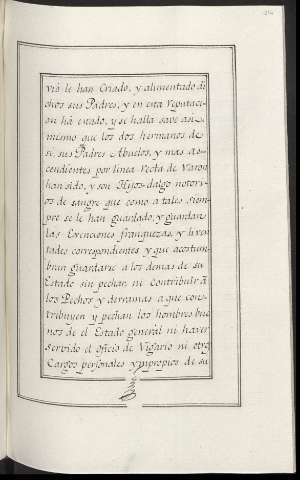 vió le han Criado, y alimentado di
chos sus Padres, y en esta Reputaci
on há estado, y se halla save asi
mismo que los dos hermanos de
sé sus Padres Abuelos, y mas as-
cendientes por linea recta de Varon
han sido, y son Hijos-dalgo notori-
os de sangre que como a tales siem-
pre se le han guardado, y guardan
las Exenciones franquezas, y liver
tades correspondientes y que acostum
bran guardarse a los demas de su
Estado sin pechar, ni contribuir á
los Pechos y derramas a que con-
tribuyen y pechan los hombres bue
nos de el Estado general ni haver
servido el oficio de Vigario ni otro
Cargos personales y impropios de su